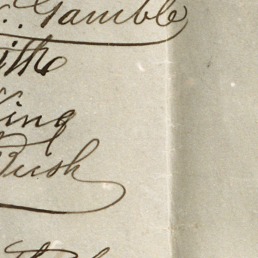 Gamble
ith
King
Bush